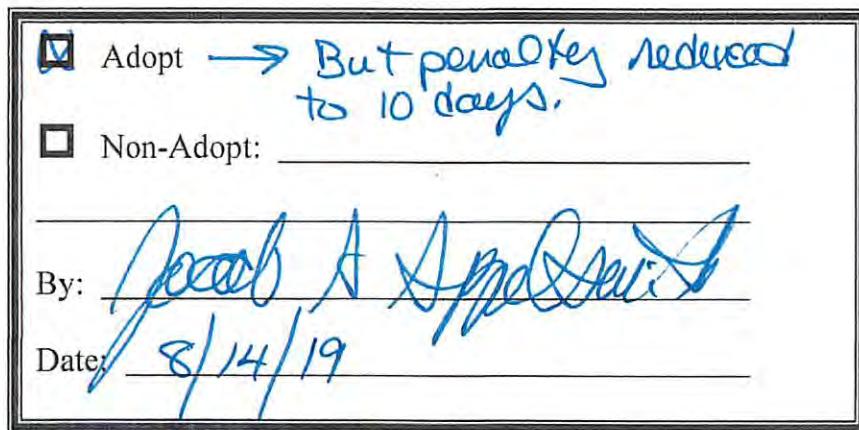 Adopt → But penalty reduced
to 10 days.
Non-Adopt:
By: Jacob A
Date: 8/14/19